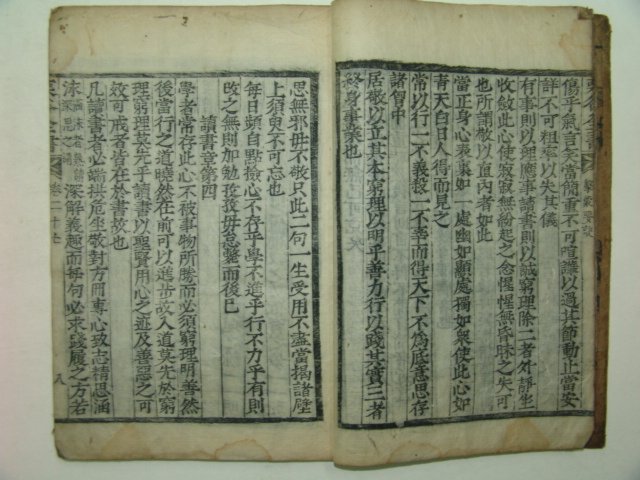 栗谷全書 擊蒙要訣
傷乎氣言笑當簡重不可喧譁以過其節動止當安
詳不可粗率以失其儀
有事則以理應事讀書則以誠窮理除二者外靜坐
收斂此心使寂寂無紛起之念惺惺無昏昧之失可
也所謂敬以直內者如此
當正身心表裏如一處幽如顯處獨如衆使此心如
青天白日人得而見之
常以行一不義殺一不辜而得天下不爲底意思存
諸胷中
居敬以立其本窮理以明乎善力行以踐其實三者
終身事業也
思無邪毋不敬只此二句一生受用不盡當揭諸壁
上須臾不可忘也
每日頻自點檢心不存乎學不進乎行不力乎有則
改之無則加勉孜孜毋怠斃而後已
讀書章第四
學者常存此心不被事物所勝而必須窮理明善然
後當行之道曉然在前可以進步故入道莫先於窮
理窮理莫先乎讀書以聖賢用心之迹及善惡之可
效可戒者皆在於書故也
凡讀書者必端拱危坐敬對方冊專心致志精思涵
泳涵泳者熟讀深思之謂深解義趣而每句必求踐履之方若
栗谷全書 卷二十七 八